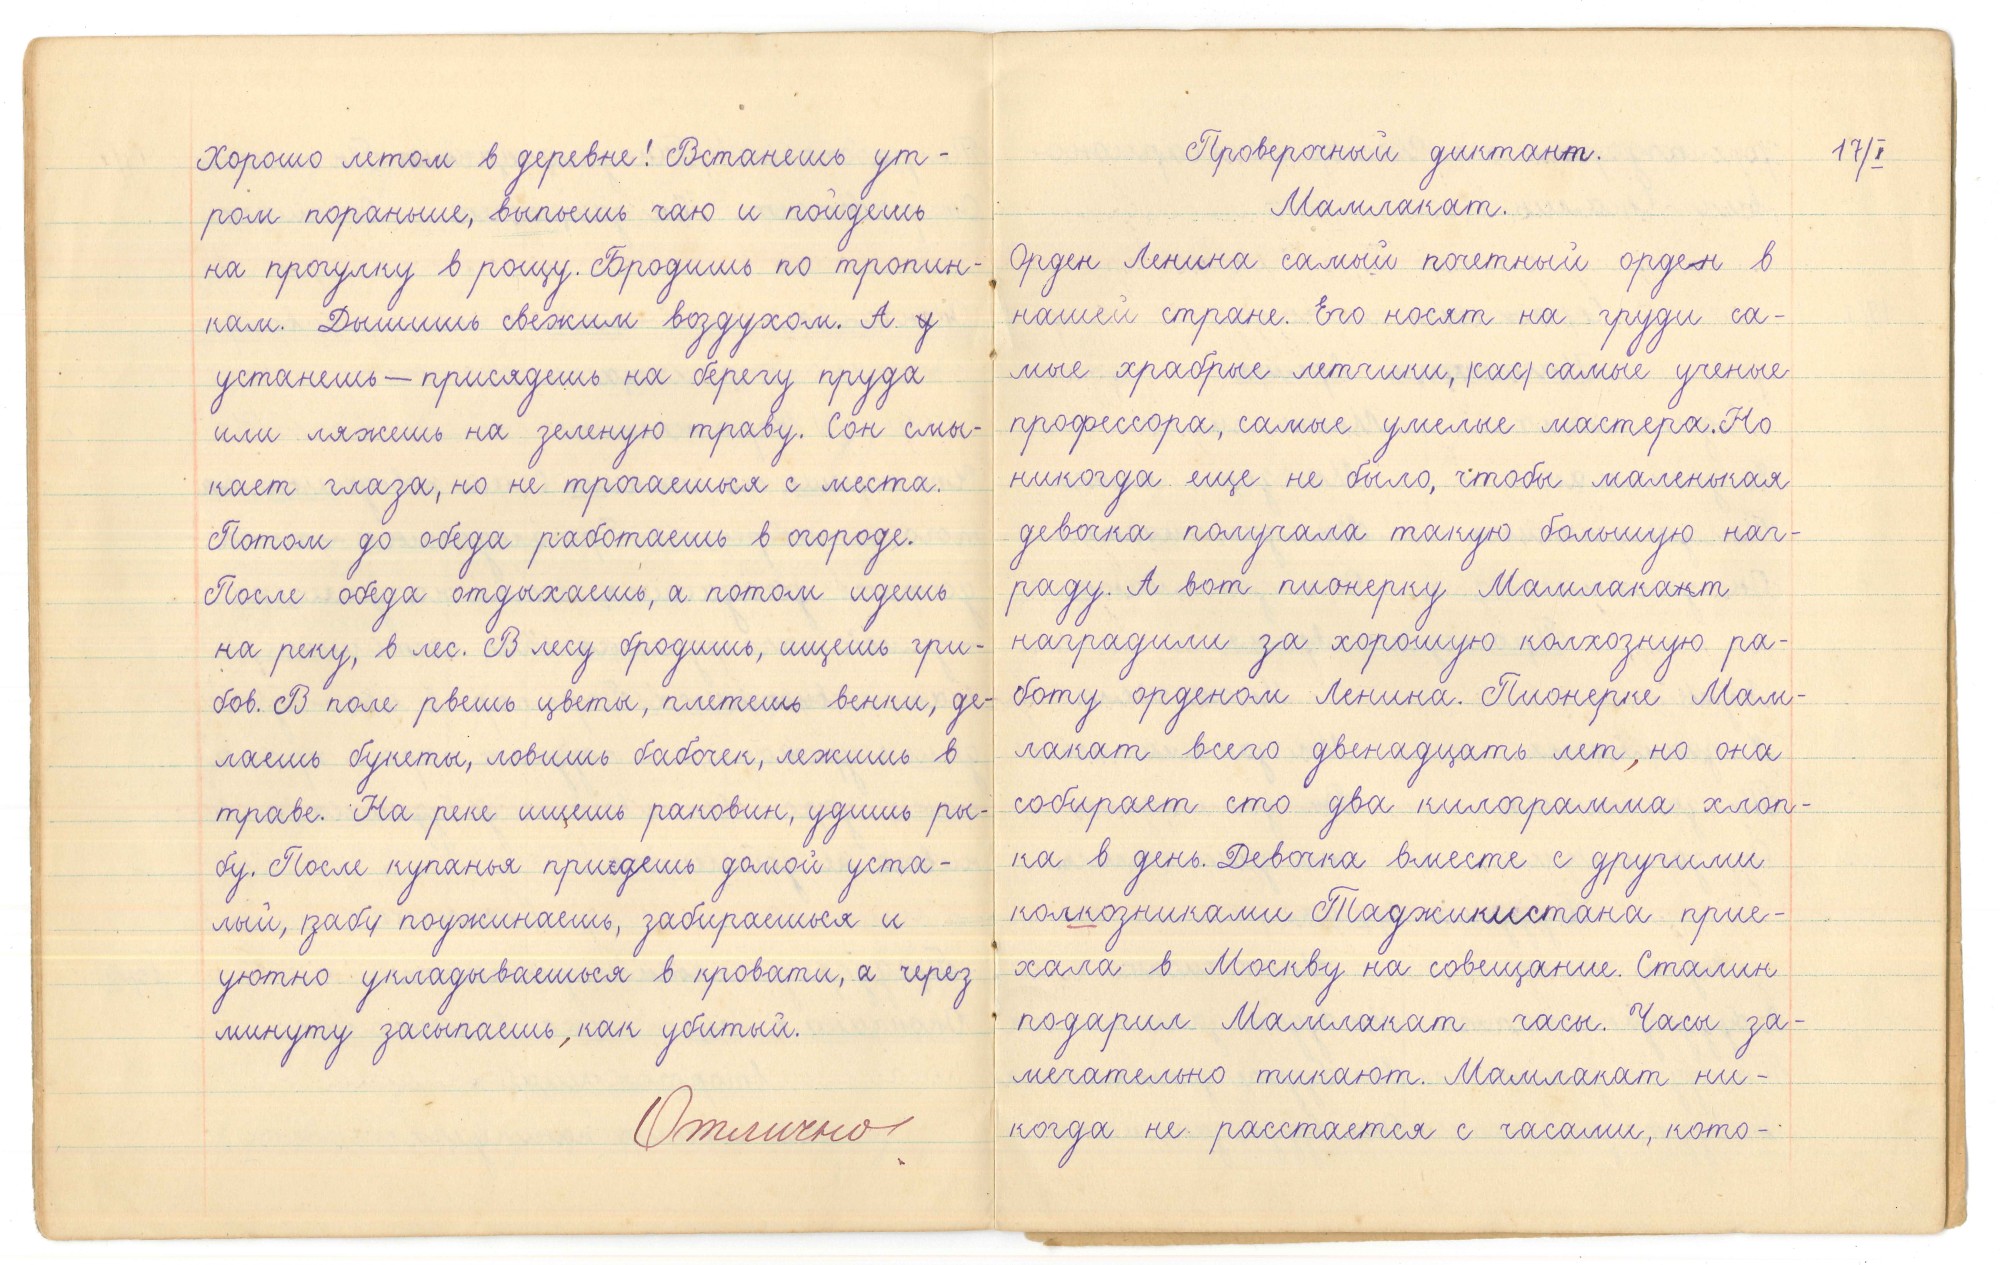 Хорошо летом в деревне! Встанешь ут-
ром пораньше, выпьешь чаю и пойдешь
на прогулку в рощу. Бродишь по тропин-
кам. Дышишь свежим воздухом. А у
устанешь — присядешь на берегу пруда
или ляжешь на зеленую траву. Сон смы-
кает глаза, но не трогаешься с места.
Потом до обеда работаешь в огороде.
После обеда отдыхаешь, а потом идешь
на реку, в лес. В лесу бродишь, ищешь гри-
бов. В поле рвешь цветы, плетешь венки, де-
лаешь букеты, ловишь бабочек, лежишь в
траве. На реке ищешь раковин, удишь ры-
бу. После купанья придешь домой уста-
лый, (забу) поужинаешь, забираешься и
уютно укладываешься в кровати, а через
минуту засыпаешь, как убитый.
Отлично
Проверочный диктант. 17/I
Мамлакат.
Орден Ленина самый почетный орден в
нашей стране. Его носят на груди са-
мые храбрые летчики, (сас) самые ученые
профессора, самые умелые мастера. Но
никогда еще не было, чтобы маленькая
девочка получала такую большую наг-
раду. А вот пионерку Мамлакат
наградили за хорошую колхозную ра-
боту орденом Ленина. Пионерке Мам-
лакат всего двенадцать лет, но она
собирает сто два килограмма хлоп-
ка в день. Девочка вместе с другими
колкозниками Таджикистана прие-
хала в Москву на совещание. Сталин
подарил Мамлакат часы. Часы за-
мечательно тикают. Мамлакат ни-
когда не расстается с часами, кото-